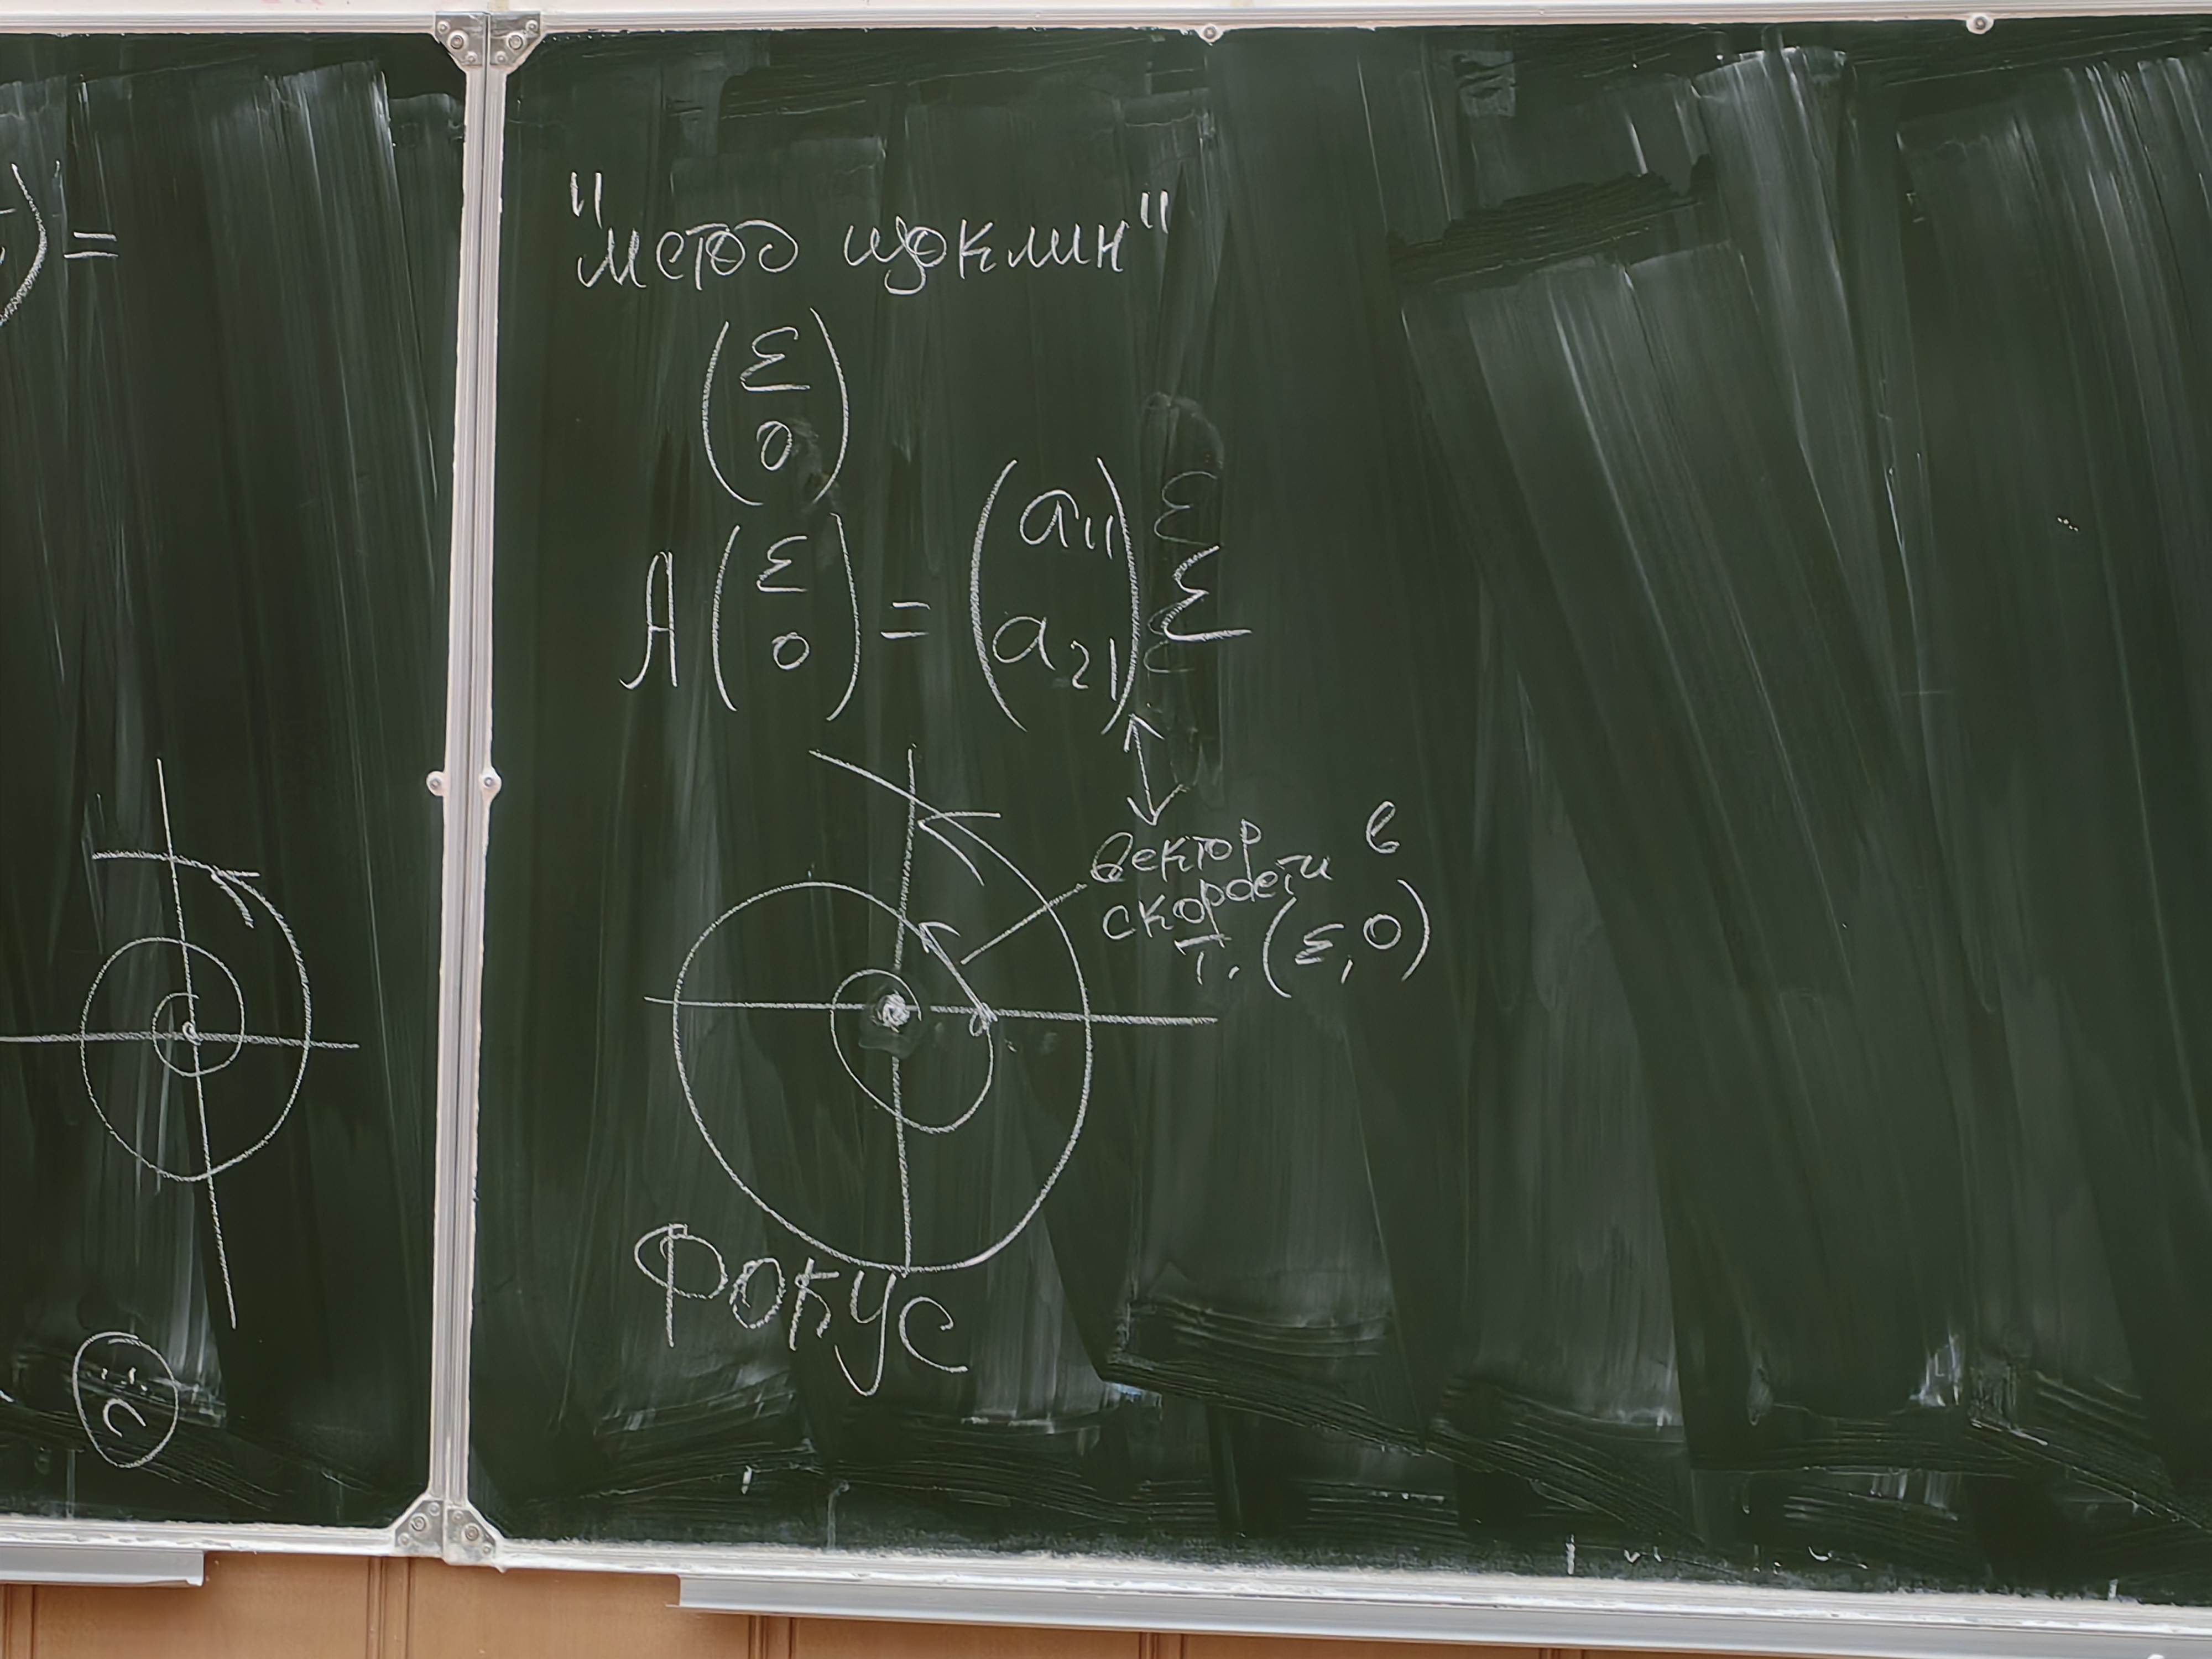 ) =
"метод изоклин"
(ε
0)
A (ε
0) = (a11
a21) ε
вектор
скорости в
т. (ε, 0)
Фокус